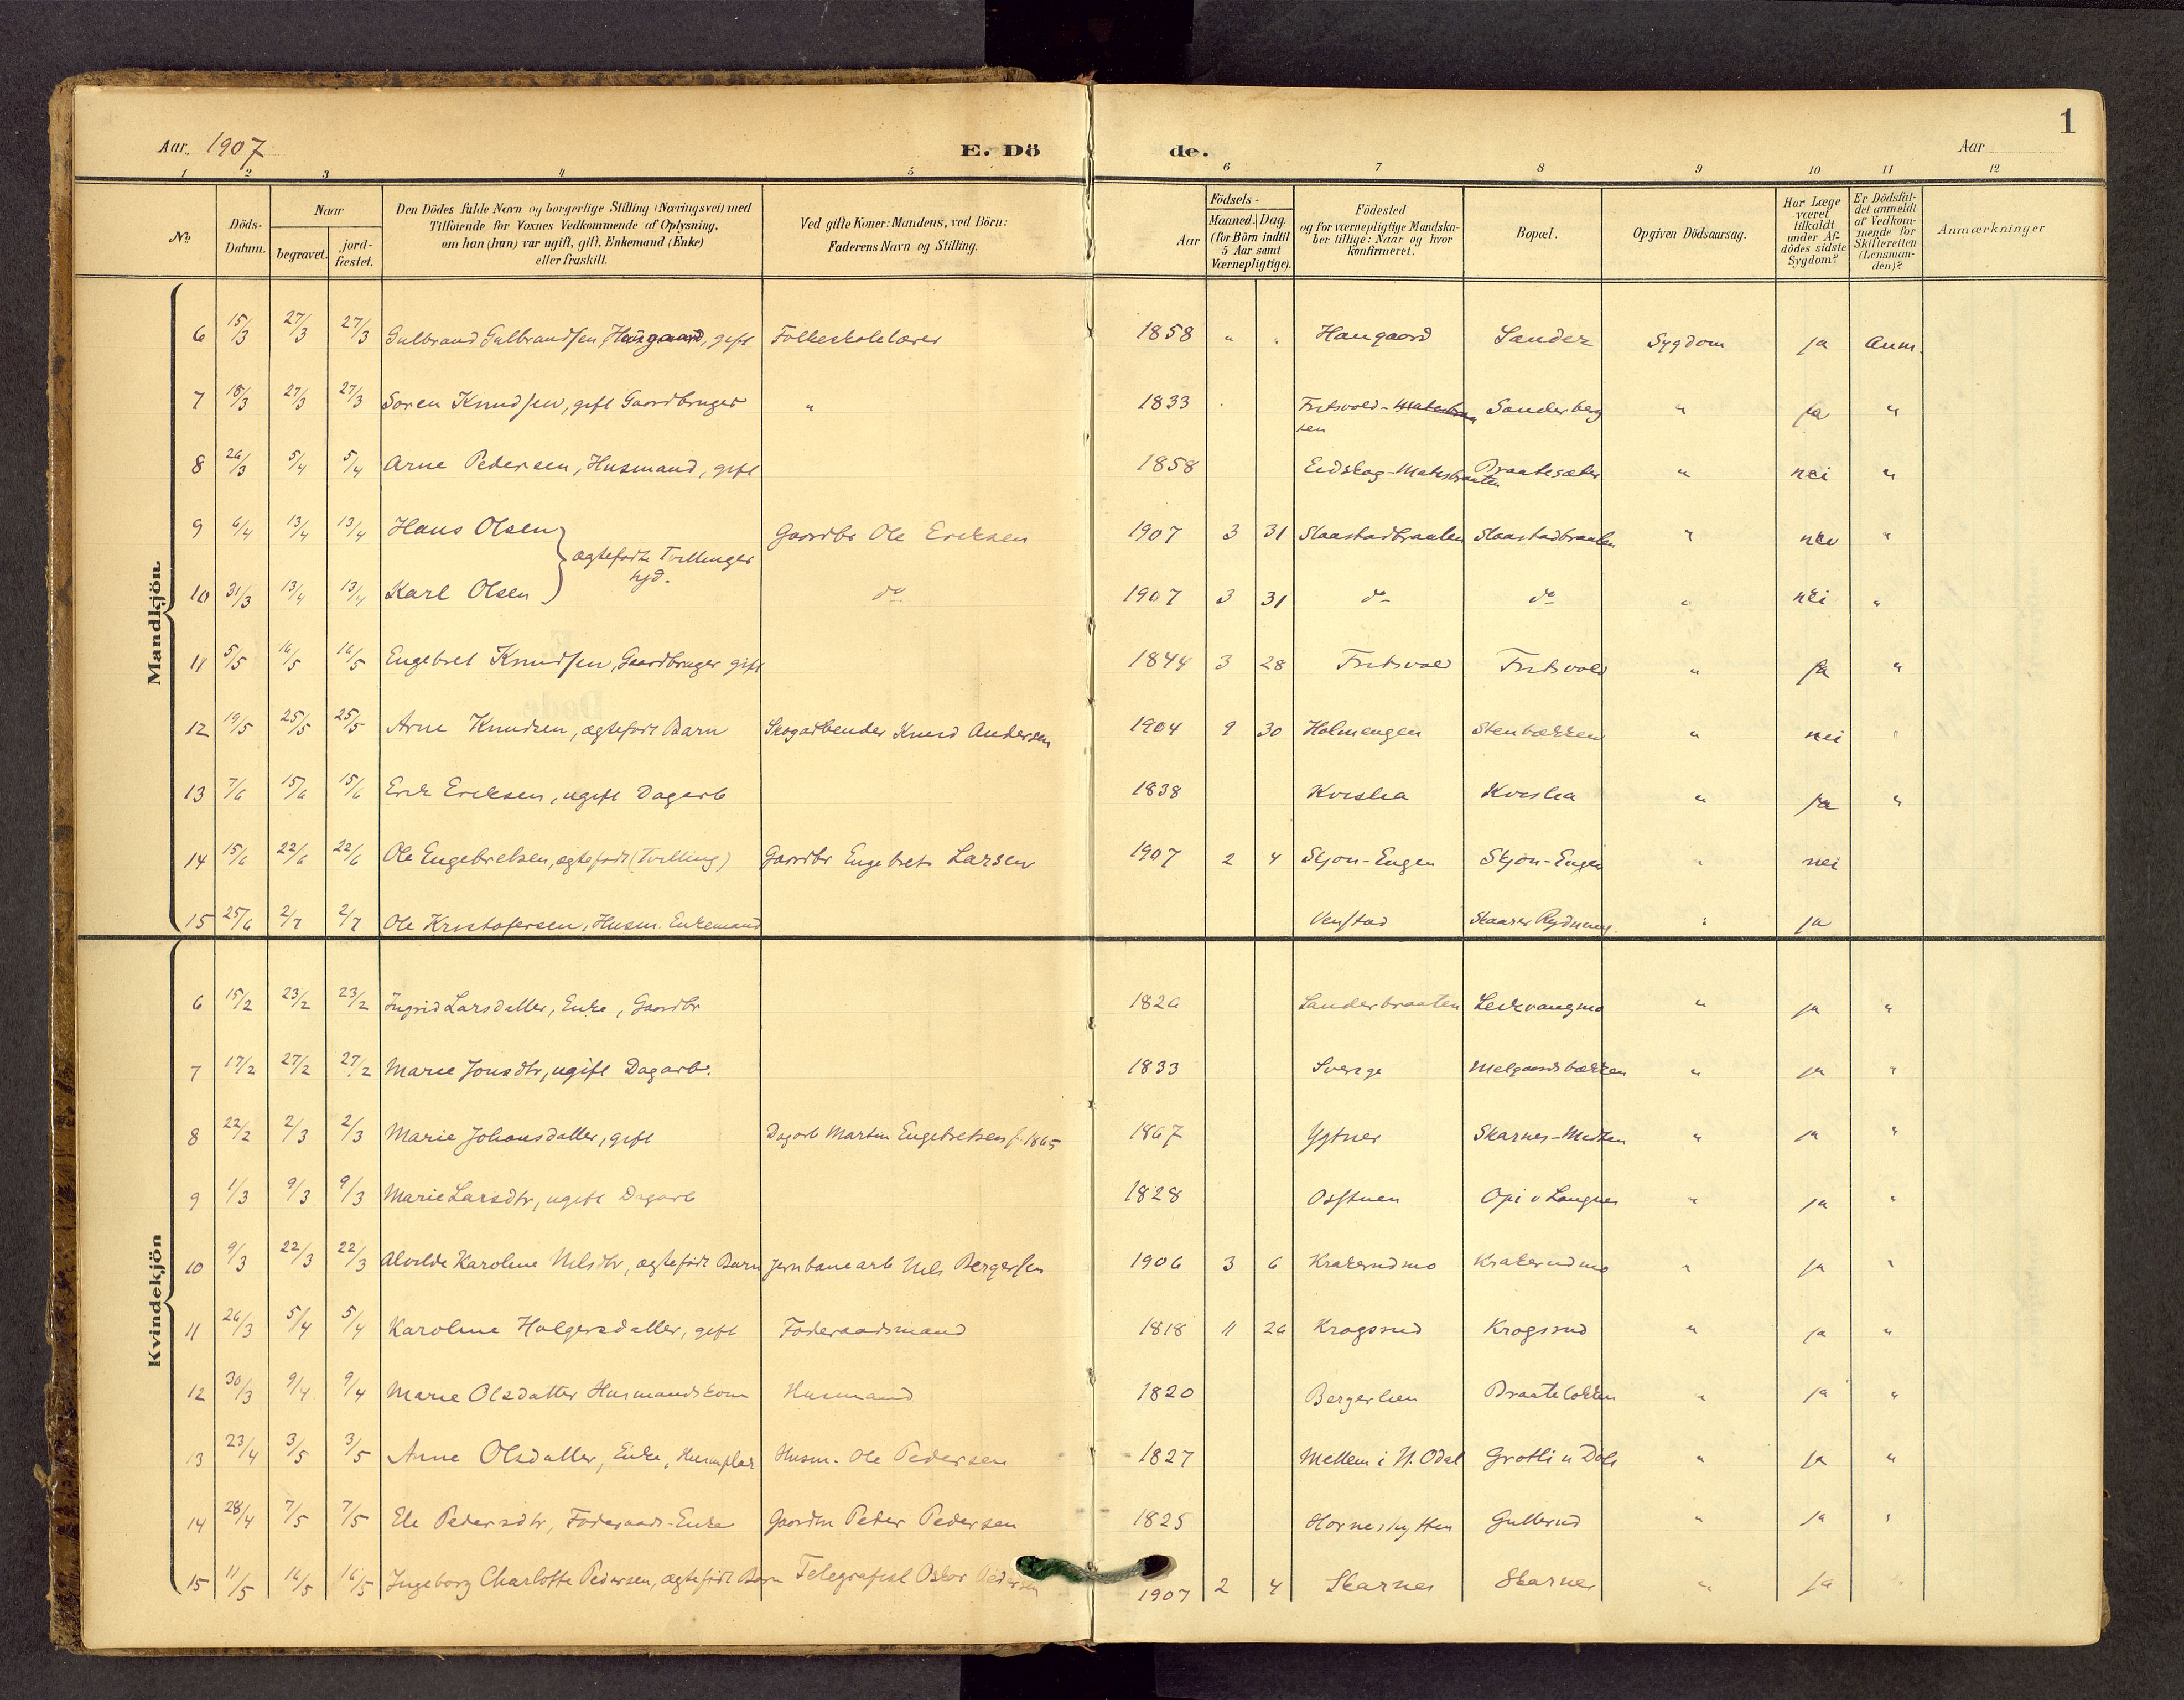 1
Aar. 1907 E. Dö de. Aar
1 2 3 4 5 6 7 8 9 10 11 12
No. Döds-Datum. Naar begravet. jordfæstet. Den Dödes fulde Navn og borgerlige Stilling (Næringsvei) med Tilföiende for Voxnes Vedkommende af Oplysning, om han (hun) var ugift, gift, Enkemand (Enke) eller fraskilt. Ved gifte Koner: Mandens, ved Börn: Faderens Navn og Stilling. Aar Födsels- Maaned. Dag. (for Börn indtil 5 Aar samt Værnepligtige). Födested og for værnepligtige Mandskaber tillige: Naar og hvor konfirmeret. Bopæl. Opgiven Dödsaarsag. Har Læge været tilkaldt under Afdödes sidste Sygdom? Er Dödsfaldet anmeldt af Vedkommende for Skifteretten (Lensmanden)? Anmærkninger
Mandkjön.
6 15/3 27/3 27/3 Gulbrand Gulbrandsen Haugaard, gift Folkeskolelærer 1858 " " Haugaard Sander Sygdom ja Anm.
7 18/3 27/3 27/3 Søren Knudsen, gift Gaardbruger " 1833 Fritsvold- Sanderberg " ja "
8 26/3 5/4 5/4 Arne Pedersen, Husmand, gift 1858 Eidskog-Matisbraaten Braatesæter " nei "
9 6/4 13/4 13/4 Hans Olsen } ægtefødte Tvillinger Gaardbr Ole Eriksen 1907 3 31 Slaastadbraaten Slaastadbraaten " nei "
10 31/3 13/4 13/4 Karl Olsen do 1907 3 31 do do " nei "
11 5/5 16/5 16/5 Engebret Knudsen, Gaardbruger gift 1844 3 28 Fritsvold Fritsvold " ja "
12 19/5 25/5 25/5 Arne Knudsen, ægtefødt Barn Skogarbeider Knud Andersen 1904 9 30 Holmengen Stenbækken " nei "
13 7/6 15/6 15/6 Erik Eriksen, ugift Dagarb 1838 Kvisla Kvisla " ja "
14 15/6 22/6 22/6 Ole Engebretsen, ægtefødt (Tvilling) Gaardbr Engebret Larsen 1907 2 4 Skjøn-Engen Skjøn-Engen " nei
15 25/6 2/7 2/7 Ole Kristofersen, Husm. Enkemand Venstad Skaarer Rydning " ja
Kvindekjön
6 15/2 23/2 23/2 Ingrid Larsdatter, Enke, Gaardbr 1826 Sanderbraaten Leirvangmo " ja "
7 17/2 27/2 27/2 Marie Jonsdtr, ugift Dagarb. 1833 Sverige Melgaardsbækken " ja "
8 22/2 2/3 2/3 Marie Johansdatter, gift Dagarb Martin Engebretsen f. 1865 1867 Ygtner Skarnes- " ja "
9 1/3 9/3 9/3 Marie Larsdtr, ugift Dagarb 1828 Osstuen Opi v Langnes " ja "
10 9/3 22/3 22/3 Alvilde Karoline Nilsdtr, ægtefødt Barn Jernbanearb Nils Bergersen 1906 3 6 Krakerudmo Krakerudmo " ja "
11 26/3 5/4 5/4 Karoline Holgersdatter, gift Føderaadsmand 1818 11 26 Krogsrud Krogsrud " ja "
12 30/3 9/4 9/4 Marie Olsdatter Husmandskone Husmand 1820 Bergerlien Braateløkken " ja "
13 23/4 3/5 3/5 Anne Olsdatter, Enke, Husmplads Husm. Ole Pedersen 1827 Mellem i N. Odal Grøtli u Døli " ja "
14 28/4 7/5 7/5 Eli Pedersdtr, Føderaads-Enke Gaardm Peder Pedersen 1825 Horneshytten Gullerud " ja "
15 11/5 16/5 16/5 Ingeborg Charlotte Pedersen, ægtefødt Barn Telegrafist Oskar Pedersen 1907 2 4 Skarnes Skarnes " ja